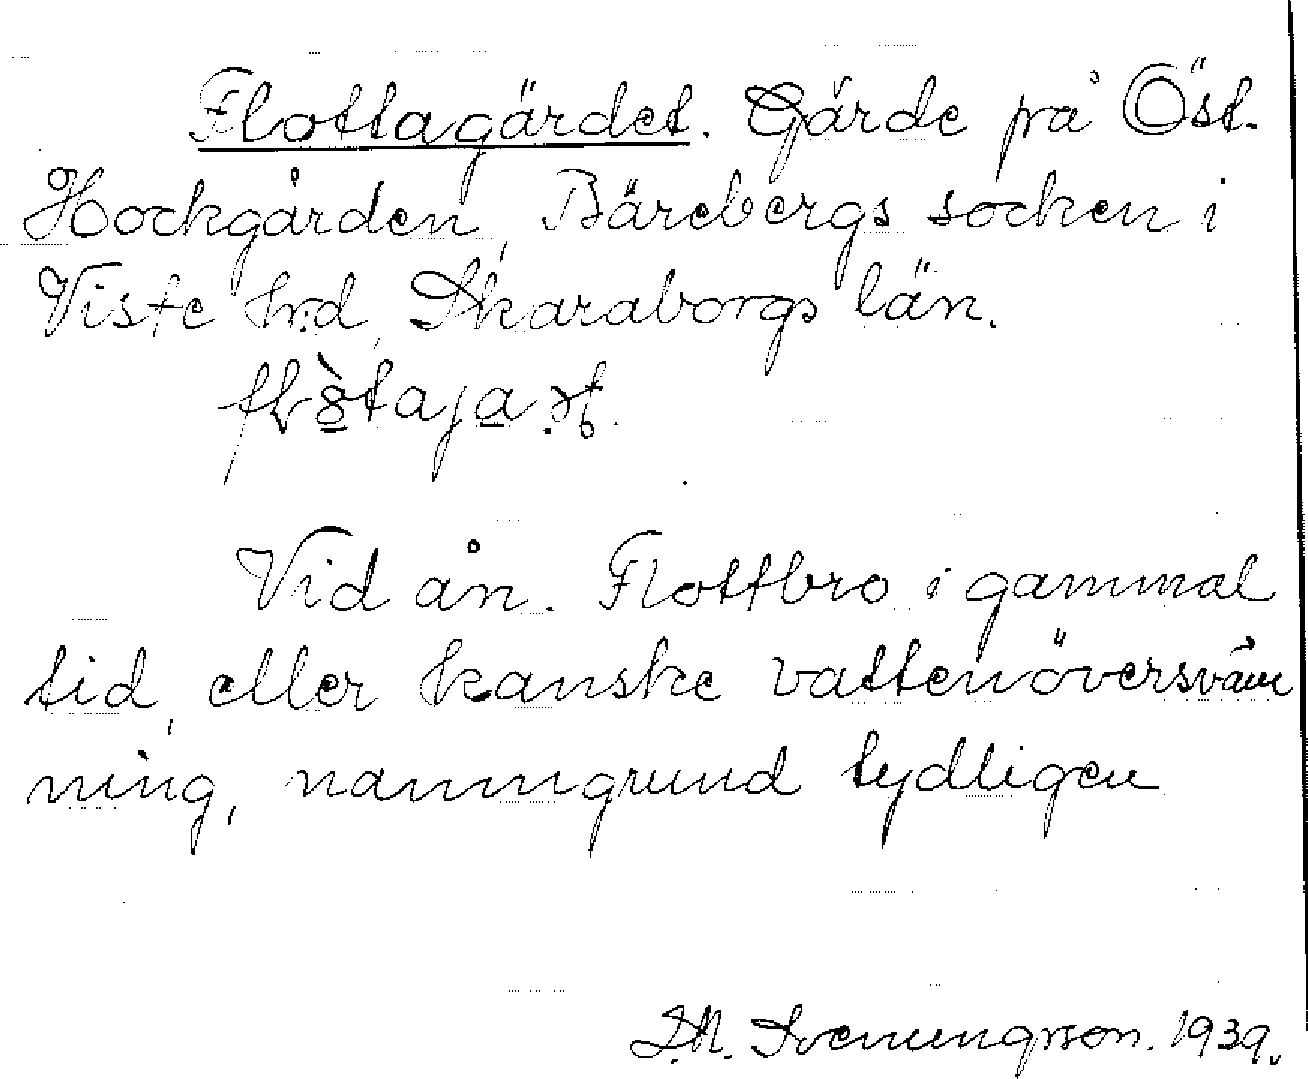 Flottagärdet. Gärde på Öst.
Hockgården, Bärebergs socken i
Viste hrd, Skaraborgs län.
Vid ån. Flottbro i gammal
tid, eller kanske vattenöversväm
ning, namngrund tydligen
Svenungsson. 1939.